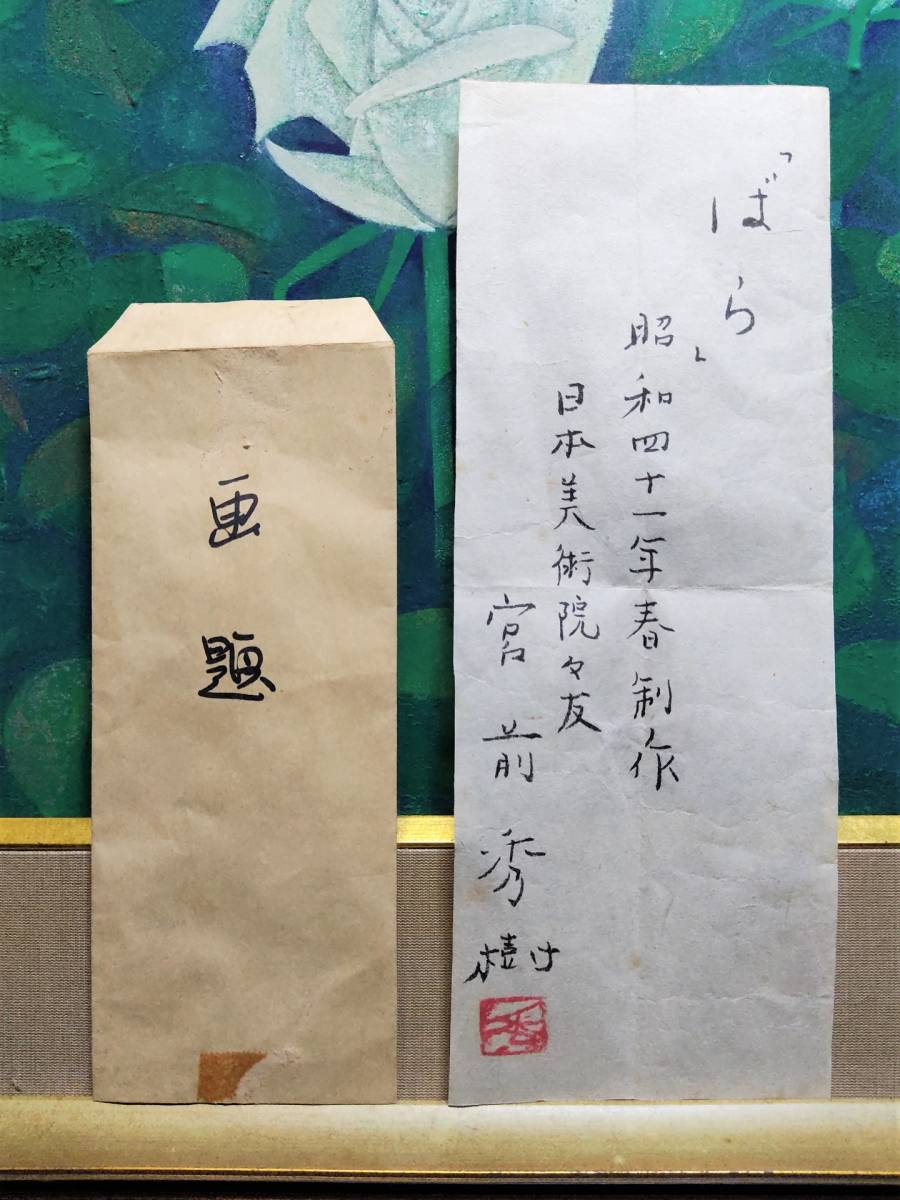 「ばら」
昭和四十一年春制作
日本美術院々友
宮前秀樹
画題